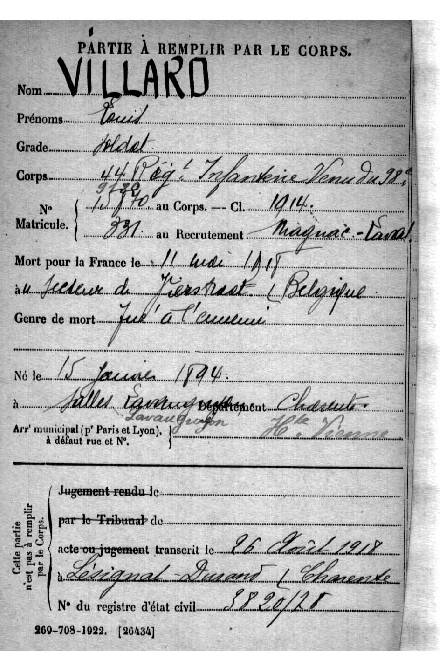 PARTIE À REMPLIR PAR LE CORPS.
Nom VILLARD
Prénoms Louis
Grade Soldat
Corps 44 Rég.t Infanterie Venu du 98e
N° Matricule. { au Corps. — Cl. 1914.
331 au Recrutement Magnac-Laval
Mort pour la France le 11 mai 1918
à Secteur de Vierstraat (Belgique
Genre de mort Tué à l'ennemi
Né le 15 Janvier 1894
à Salles Lavauguyon Département Charente
Lavauguyon Hte Vienne
Arr' municipal (p' Paris et Lyon),
à défaut rue et N°.
Cette partie n'est pas à remplir par le Corps.
Jugement rendu le
par le Tribunal de
acte ou jugement transcrit le 26 Août 1918
à Lésignac-Durand (Charente
N° du registre d'état civil 3820/78
269-708-1922. [26434]